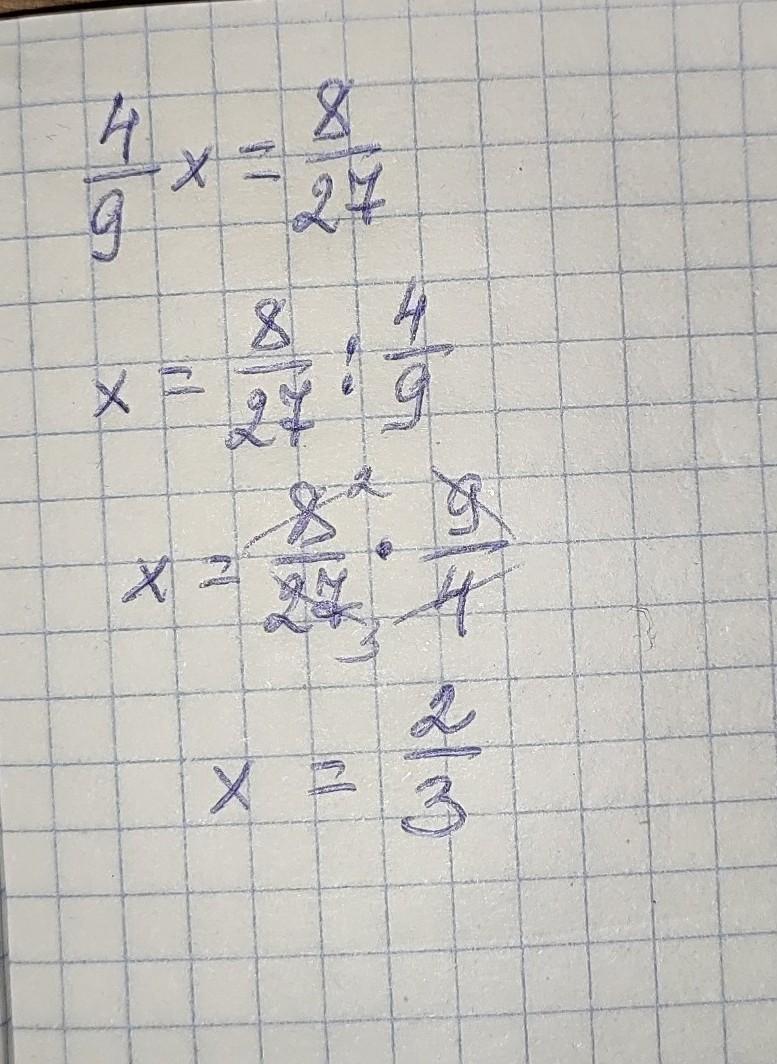 4/9 x = 8/27
x = 8/27 : 4/9
x = 8 2/27 3 · 9/4
x = 2/3